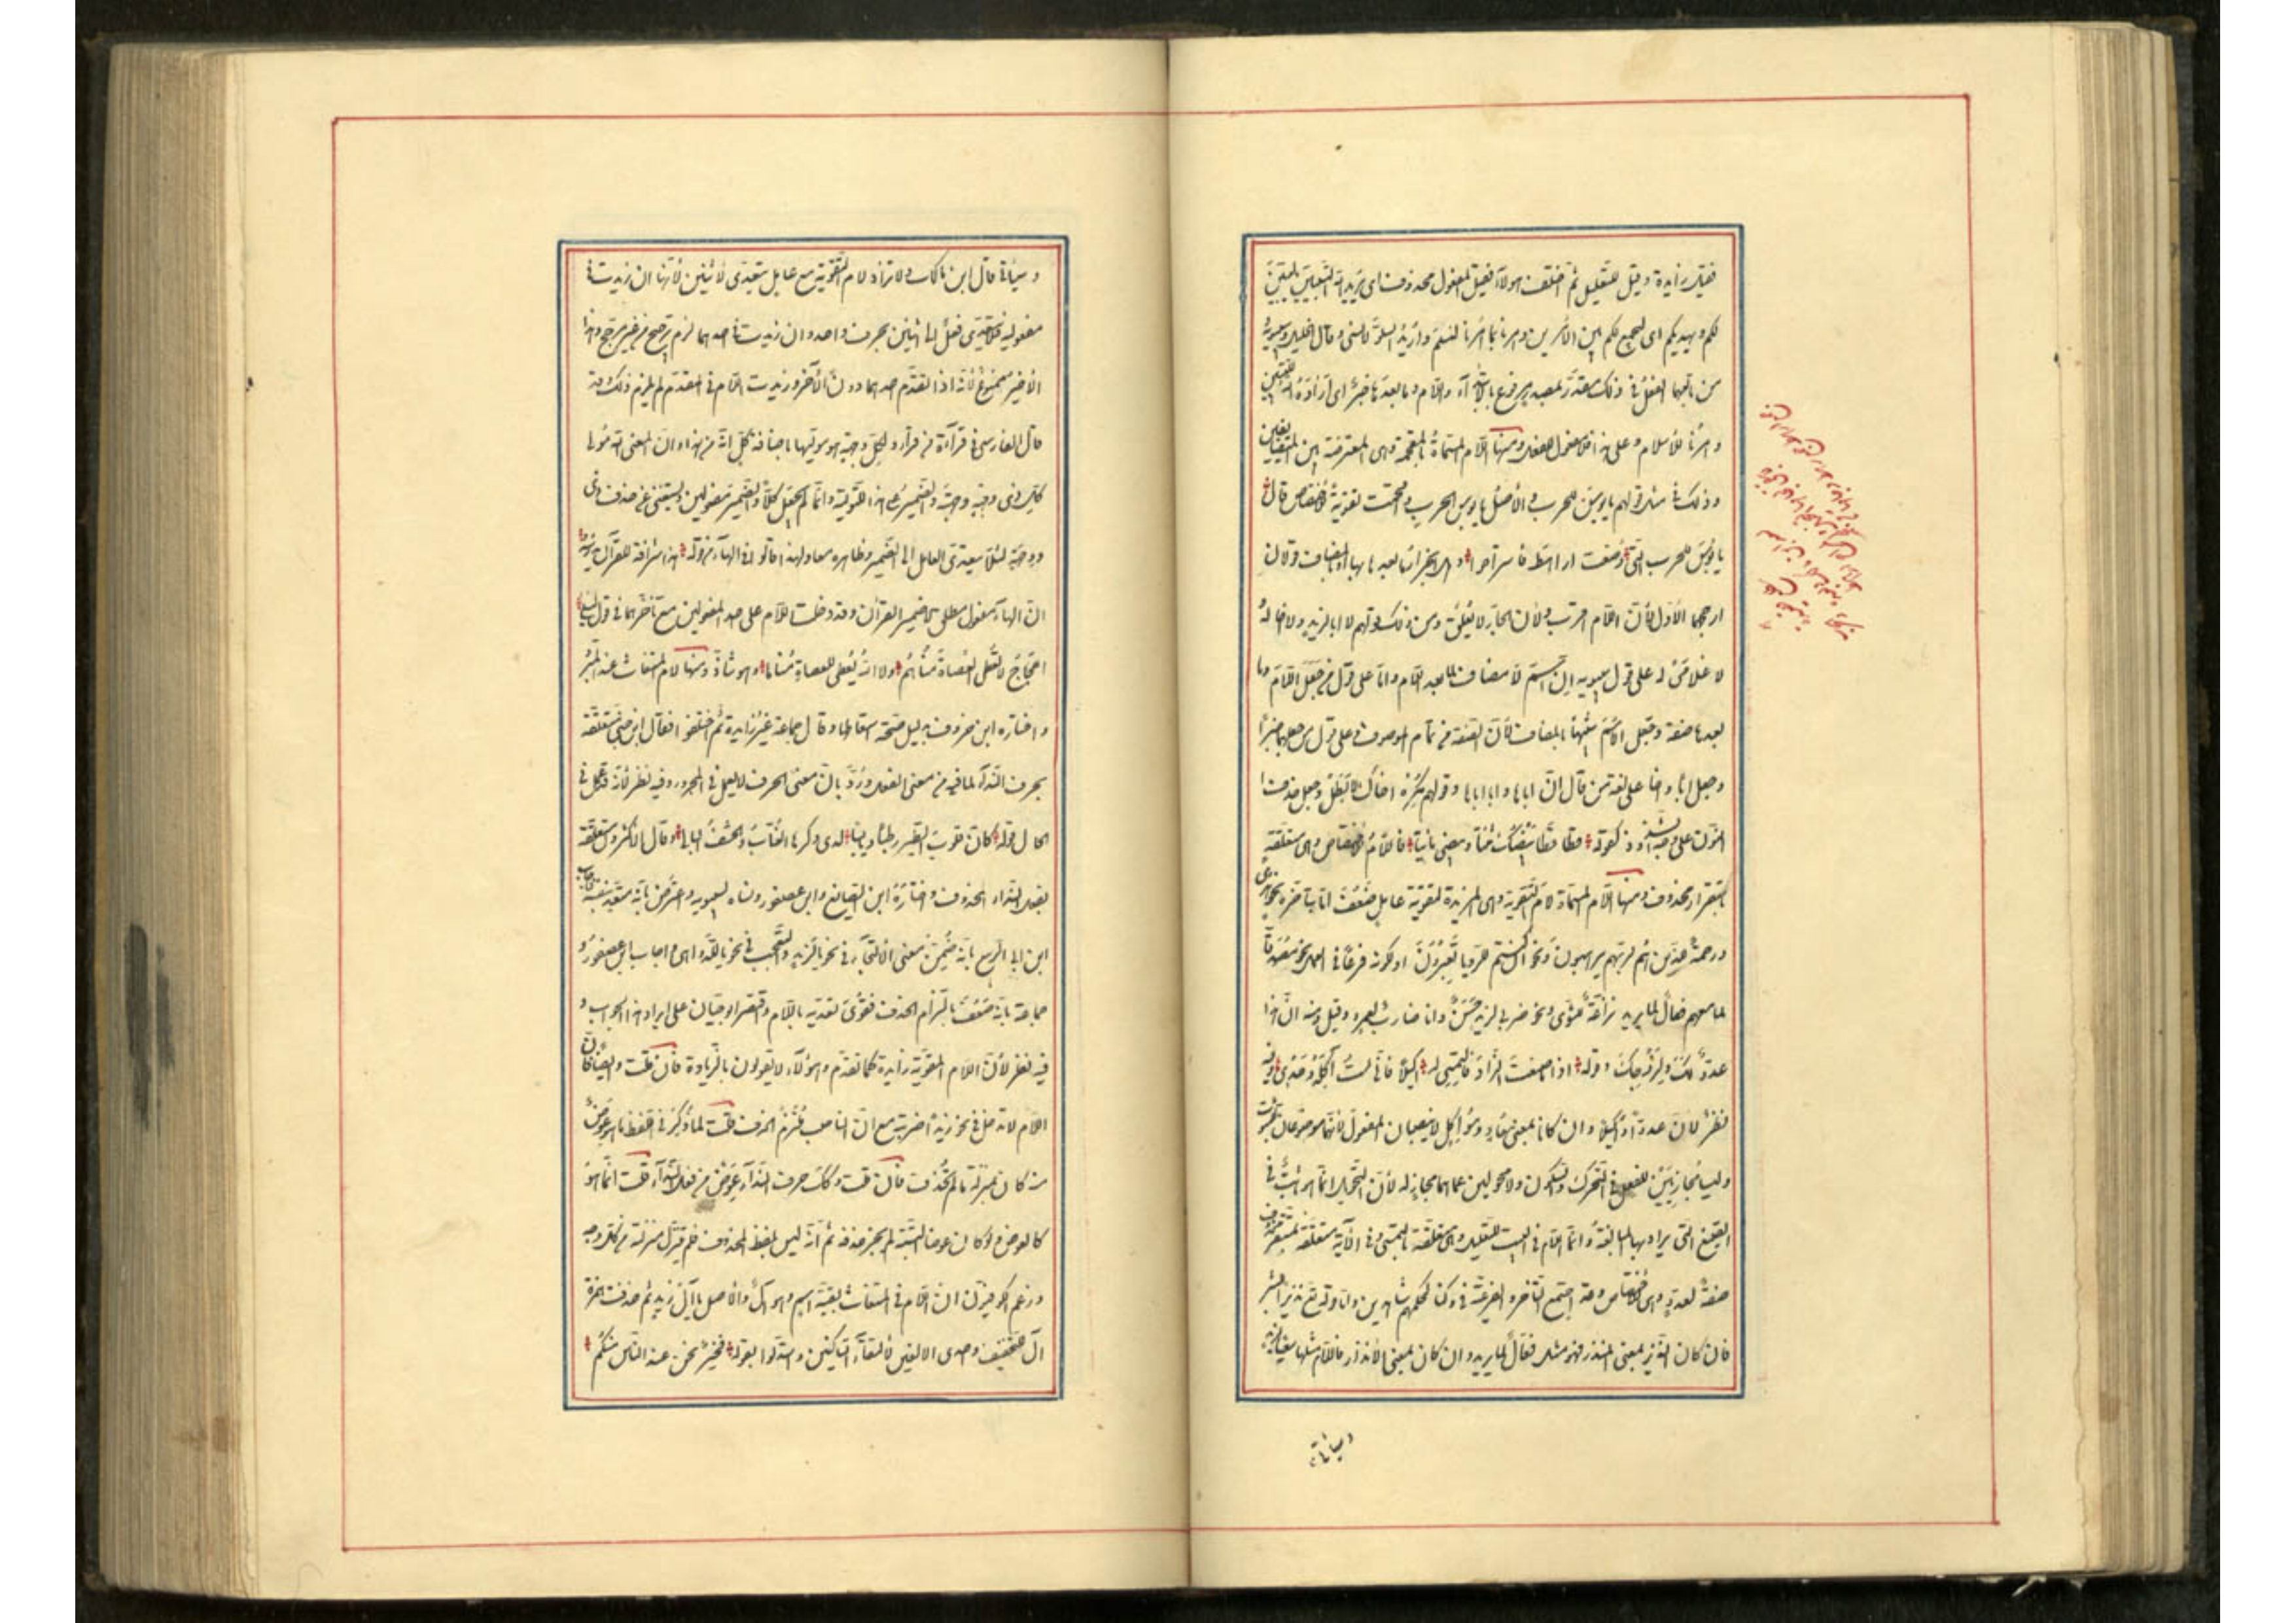 فقيل زايدة وقيل للتعليل ثم اختلف هولاء فقيل المفعول محذوف اى يريد الله التبيين ليبين
لكم ويهديكم اى ليجمع لكم بين الامرين وامرنا بما امرنا لنسلم واريد السلو لانسى وقال الخليل وسيبويه
ومن تابعهما الفعل فى ذلك مقدر بمصدر مرفوع بالابتداء واللام وما بعدها خبر اى ارادة الله للتبيين
وامرنا للاسلام وعلى هذا فلا مفعول للفعل ومنها اللام المسماة بالمقحمة وهى المعترضة بين المتضايفين
وذلك فى مثل قولهم يا بوس للحرب والاصل يا بوس الحرب فاقحمت تقوية للاختصاص قال
يا بؤس للحرب التى وضعت اراهط فاستراحوا وهل انجرار ما بعدها بها او بالمضاف قولان
ارجحهما الاول لأن اللام اقرب ولأن الجار لا يعلق ومن ذلك قولهم لا ابا لزيد ولا اخا له
لا غلامى له على قول سيبويه ان اسم لا مضاف لما بعد اللام واما على قول من جعل اللام وما
بعدها صفة وجعل الاسم شبيها بالمضاف لأن الصفة من تمام الموصوف وعلى قول من جعلهما خبرا
وجعل ابا واخا على لغة من قال ان اباها وابا اباها وقولهم مكره اخاك لا بطل وجعل حذف
النون على وجه الشذوذ كقوله قطا قطا بيضك ثنتا وبيضى مائتا فاللام للاختصاص وهى متعلقة
باستقرار محذوف ومنها اللام المسماة لام التقوية وهى المزيدة لتقوية عامل ضعف اما بتاخره نحو هدى
ورحمة للذين هم لربهم يرهبون ونحو ان كنتم للرويا تعبرون او بكونه فرعا فى العمل نحو مصدقا
لما معهم فعال لما يريد نزاعة للشوى ونحو ضربى لزيد حسن وانا ضارب لعمرو وقيل ومنه ان هذا
عدو لك ولزوجك وقوله اذا ما صنعت الزاد فالتمسى له اكيلا فانى لست آكله وحدى وفيه
نظر لان عدوا واكيلا وان كانا بمعنى معاد ومؤاكل لا ينصبان المفعول لانهما موضوعان للثبوت
وليسا مجاريين للفعل فى التحرك والسكون ولا محولين عما هما مجاز له لأن التحويل انما هو ثابت فى
الصيغ التى يراد بها المبالغة وانما اللام فى البيت للتعليل وهى متعلقة بالتمسى وفى الآية متعلقة بمستقر محذوف
صفة لعدو وهى للاختصاص وقد اجتمع التاخر والفرعية فى وكنا لحكمهم شاهدين واما قوله تع نذيرا للبشر
فان كان النذير بمعنى المنذر فهو مثل فعال لما يريد وان كان بمعنى الانذار فاللام مثلها فى سقيا لزيد
وسياتى
وسياتى قال ابن مالك ولا تزاد لام التقوية مع عامل يتعدى لاثنين لأنها ان زيدت فى
مفعوليه فلا يتعدى فعل الى اثنين بحرف واحد وان زيدت فى احدهما لزم ترجيح من غير مرجح وهذا
الاخير ممنوع لأنه اذا تقدم احدهما دون الآخر وزيدت اللام فى المقدم لم يلزم ذلك وقد
قال الفارسى فى قراءة من قرأ ولكل وجهة هو موليها باضافة كل انه من هذا وان المعنى الله مول
كل ذى وجهة وجهته والضمير على هذا للتولية وانما لم يجعل كلا والضمير مفعولين ويستغنى عن حذف ذى
ووجهته لئلا يتعدى العامل الى الضمير وظاهره معا ولهذا قالوا فى الهاء من قوله هذا سراقة للقرآن يدرسه
ان الهاء مفعول مطلق لا ضمير القرآن وقد دخلت اللام على احد المفعولين مع تأخرهما فى قول ليلى
احجاج لا تعطى العصاة مناهم ولا الله يعطى للعصاة مناها وهو شاذ ومنها لام المستغاث عند المبرد
واختاره ابن خروف بدليل صحة اسقاطها وقال جماعة غير زايدة ثم اختلفوا فقال ابن جنى متعلقة
بحرف النداء لما فيه من معنى الفعل ورد بان معنى الحرف لا يعمل فى المجرور وفيه نظر لأنه قد عمل فى
الحال قوله كان قلوب الطير رطبا ويابسا لدى وكرها العناب والحشف البالى وقال الاكثرون متعلقة
بفعل النداء المحذوف واختاره ابن الضايع وابن عصفور ونسباه لسيبويه واعترض بانه متعد بنفسه فاجاب
ابن ابى الربيع بانه ضمن معنى الالتجاء فى نحو يا لزيد والتعجب فى نحو يا للدواهى واجاب ابن عصفور و
جماعة بانه ضعف بالتزام الحذف فقوى تعديه باللام واقتصر ابو حيان على ايراد هذا الجواب و
فيه نظر لأن اللام المقوية زايدة كما تقدم وهؤلاء لا يقولون بالزيادة فان قلت وايضا فان
اللام لا تدخل فى نحو زيدا ضربته مع ان الناصب ملتزم الحذف قلت لما ذكر فى اللفظ ما هو عوض
منه كان بمنزلة ما لم يحذف فان قلت وكذلك حرف النداء عوض من فعل النداء قلت انما هو
كالعوض ولو كان عوضا البتة لم يجز حذفه ثم انه ليس بلفظ المحذوف فلم ينزل منزلته من كل وجه
وزعم الكوفيون ان اللام فى المستغاث بقية اسم وهو آل والأصل يا آل زيد ثم حذفت همزة
آل للتخفيف واحدى الالفين لالتقاء الساكنين واستدلوا بقوله فخير نحن عند الناس منكم